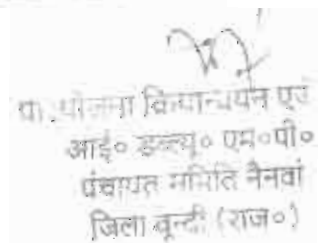 पा. योजना क्रियान्वयन एवं
आई० डब्ल्यू० एम०पी०
पंचायत समिति नैनवां
जिला बून्दी (राज०)